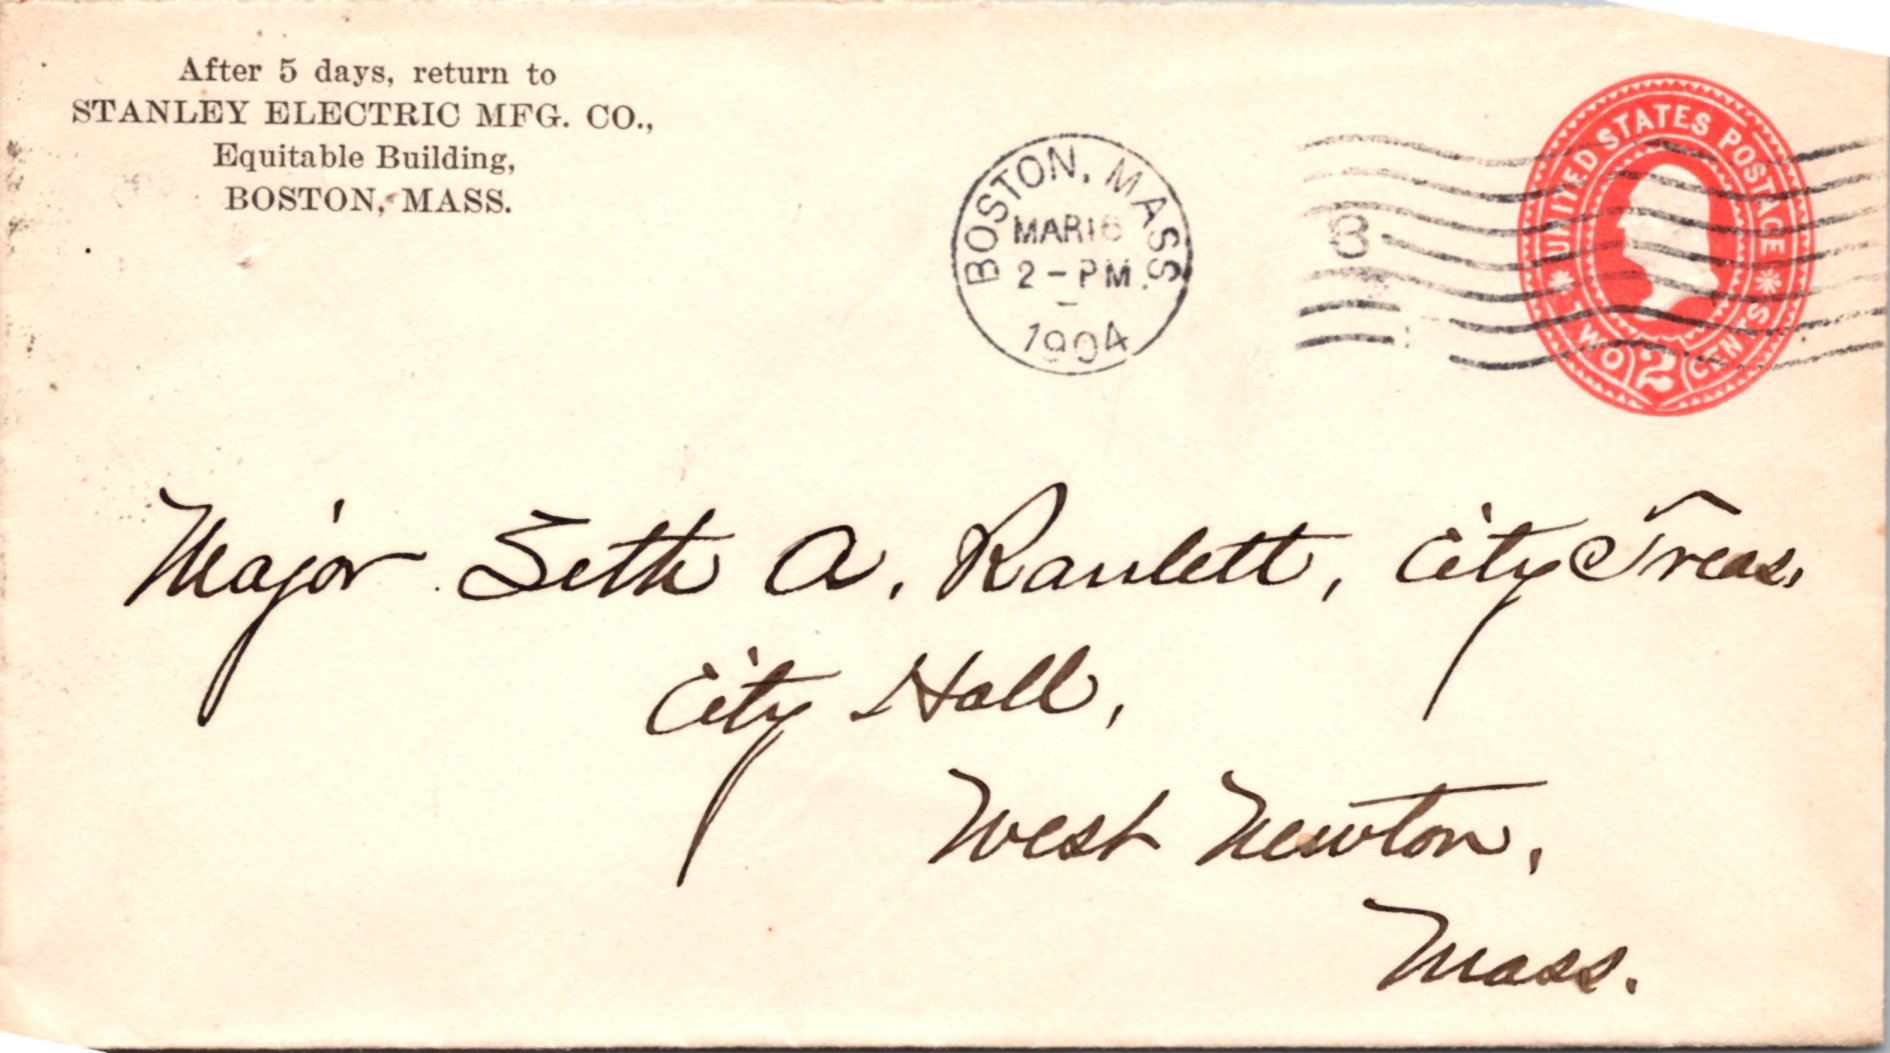 After 5 days, return to
STANLEY ELECTRIC MFG. CO.,
Equitable Building,
BOSTON, MASS.
BOSTON, MASS.
MAR 16
2 - PM
1904
3
UNITED STATES POSTAGE
TWO 2 CENTS
Major Seth A. Ranlett, City Treas.
City Hall,
West Newton,
Mass.